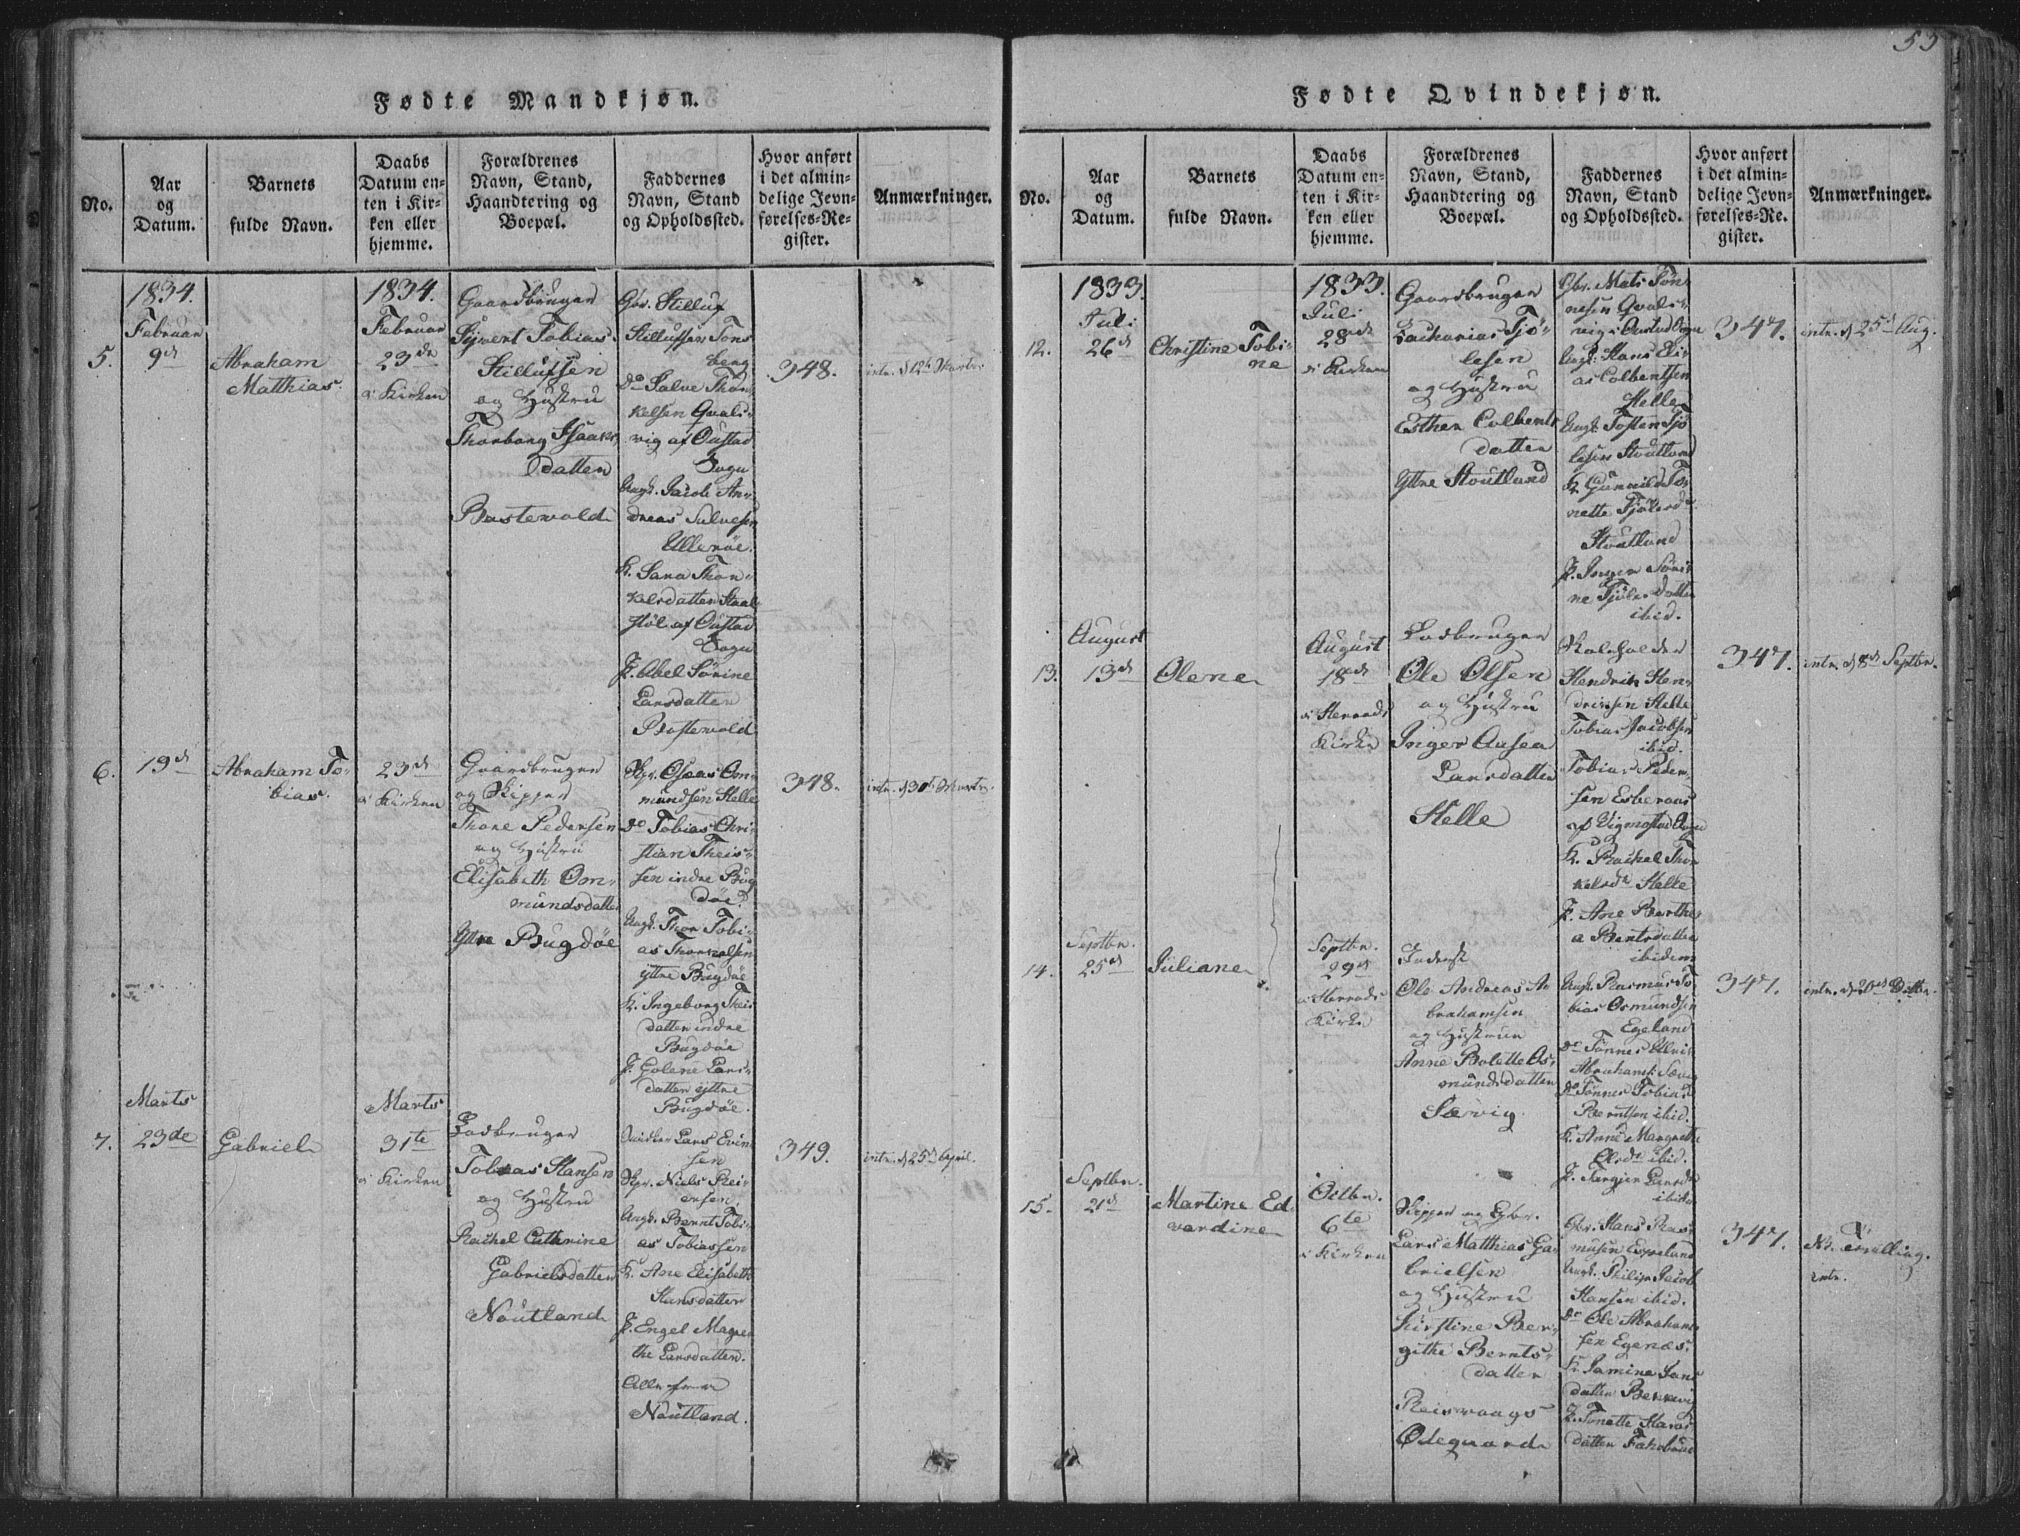 53
Fødte Mandkjøn.
No.
Aar
og
Datum.
Barnets
fulde Navn.
Daabs
Datum en-
ten i Kir-
ken eller
hjemme.
Forældrenes
Navn, Stand,
Haandtering og
Boepæl.
Faddernes
Navn, Stand
og Opholdssted.
Hvor anført
i det almin-
delige Jevn-
førelses-Re-
gister.
Anmærkninger.
1834.
Februar
5.
9d
Abraham
Matthias.
1834.
Februar
23de
i Kirken
Gaardbruger
Sivert Tobias
Stillufsen
og Hustru
Thorborg Isaaks
datter
Bastevold
Gbr. Stilluf
Stillufsen Tons
berg
do Salve Thor
kelsen Qvals-
vig af Oustad
Sogn
Ungk. Jacob An-
dreas Salvesen
Ullerøe.
K. Sara Thor-
kelsdatter Staal
støl af Oustad
Sogn
P. Abel Sørine
Larsdatter
Bastevold
348.
intr. d 12t Marts
6.
19d
Abraham To-
bias.
23d
i Kirken
Gaardbruger
og Skipper
Thore Pedersen
og Hustru
Elisabeth Om-
mundsdatter
Yttre Bugdøe
Gbr. Osaas Om-
mundsen Helle
do Tobias Chri-
stian Theis-
sen indre Bug
døe.
Ungk. Thor Tobi-
as Thorkelsen
yttre Bugdøe
K. Ingeborg Theis
datter indre
Bugdøe
P. Golene Lars-
datter yttre
Bugdøe.
348.
Marts
7.
23de
Gabriel
Marts
31te
i Kirken
Jordbruger
Tobias Hansen
og Hustru
Rachel Cathrine
Gabrielsdatter
Noutland
Lars Evin
sen
Gbr. Niels Rei-
ersen
Ungk. Bernt Tobi-
as Tobiassen
K. Ane Elisabeth
Hansdatter
P. Engel Magre
the Larsdatter.
Alle fra
Noutland.
349.
intr. d 25d April.
Fødte Qvindekjøn.
No.
Aar
og
Datum.
Barnets
fulde Navn.
Daabs
Datum en-
ten i Kir-
ken eller
hjemme.
Forældrenes
Navn, Stand,
Haandtering og
Boepæl.
Faddernes
Navn, Stand
og Opholdssted.
Hvor anført
i det almin-
delige Jevn-
førelses-Re-
gister.
Anmærkninger.
1833.
Juli
12.
26d
Christine Tobi-
ne
1833.
Juli
28de
i Kirken
Gaardbruger
Zacharias Tjø-
lesen
og Hustru
Esther Colbents
datter
Yttre Stoutland
Gbr. Mats Tøn
nesen Qvals-
vig i Oustad Sogn
Ungk. Hans Eli-
as Colbentsen
Helle
Ungk. Tosten Tjø
lesen Stoutland
K. Gunnild To-
nette Tjølesd.
Stoutland
P. Inger Søri-
ne Tjølesdatter
ibid.
347.
intr. d 25d Aug.
August
13.
13d
Olene
August
18d
i Herreds
Kirke
Jordbruger
Ole Olsen
og Hustru
Inger Aasea
Larsdatter
Helle
Hendrik Hen-
driksen Helle
Tobias Jacobsen
ibid.
Tobias Peder-
sen Esberaas
af Vigmostad Sogn
K. Rachel Thor
kelsdr Helle
P. Ane Berthe
a Berntsdatter
ibidem
347.
intr. d 8d Septbr.
Septbr.
14.
25d
Juliane
Septbr.
29d
i Herreds
Kirke
Inderst
Ole Andreas A-
brahamsen
og Hustrue
Anne Bolette Os-
mundsdatter
Særvig
Ungk. Rasmus To
bias Osmundsen
Egeland
do Tønnes Ulri-
Abrahams. Særvig
do Tønnes Tobias
Berntsen ibid.
K. Anne Margrethe
Olsdr ibid.
P. Torgier Larsdr
ibid.
347.
Septbr.
15.
21d
Martine Ed-
vardine
Octbr.
6te
i Kirken
Skipper og Gbr.
Lars Matthias Ga-
brielsen
og Hustru
Kirstine Ber-
githe Bernts-
datter
Reisvaags
Ødegaard
Gbr. Hans Ras-
musen Eppeland
Ungk. Philip Jacob
Hansen ibid.
do Ole Abraham
sen Egenæs.
K. Samine Lars
datter Berrevig
P. Tonette Hans
datter
347.
NB. Tvilling.
intr.